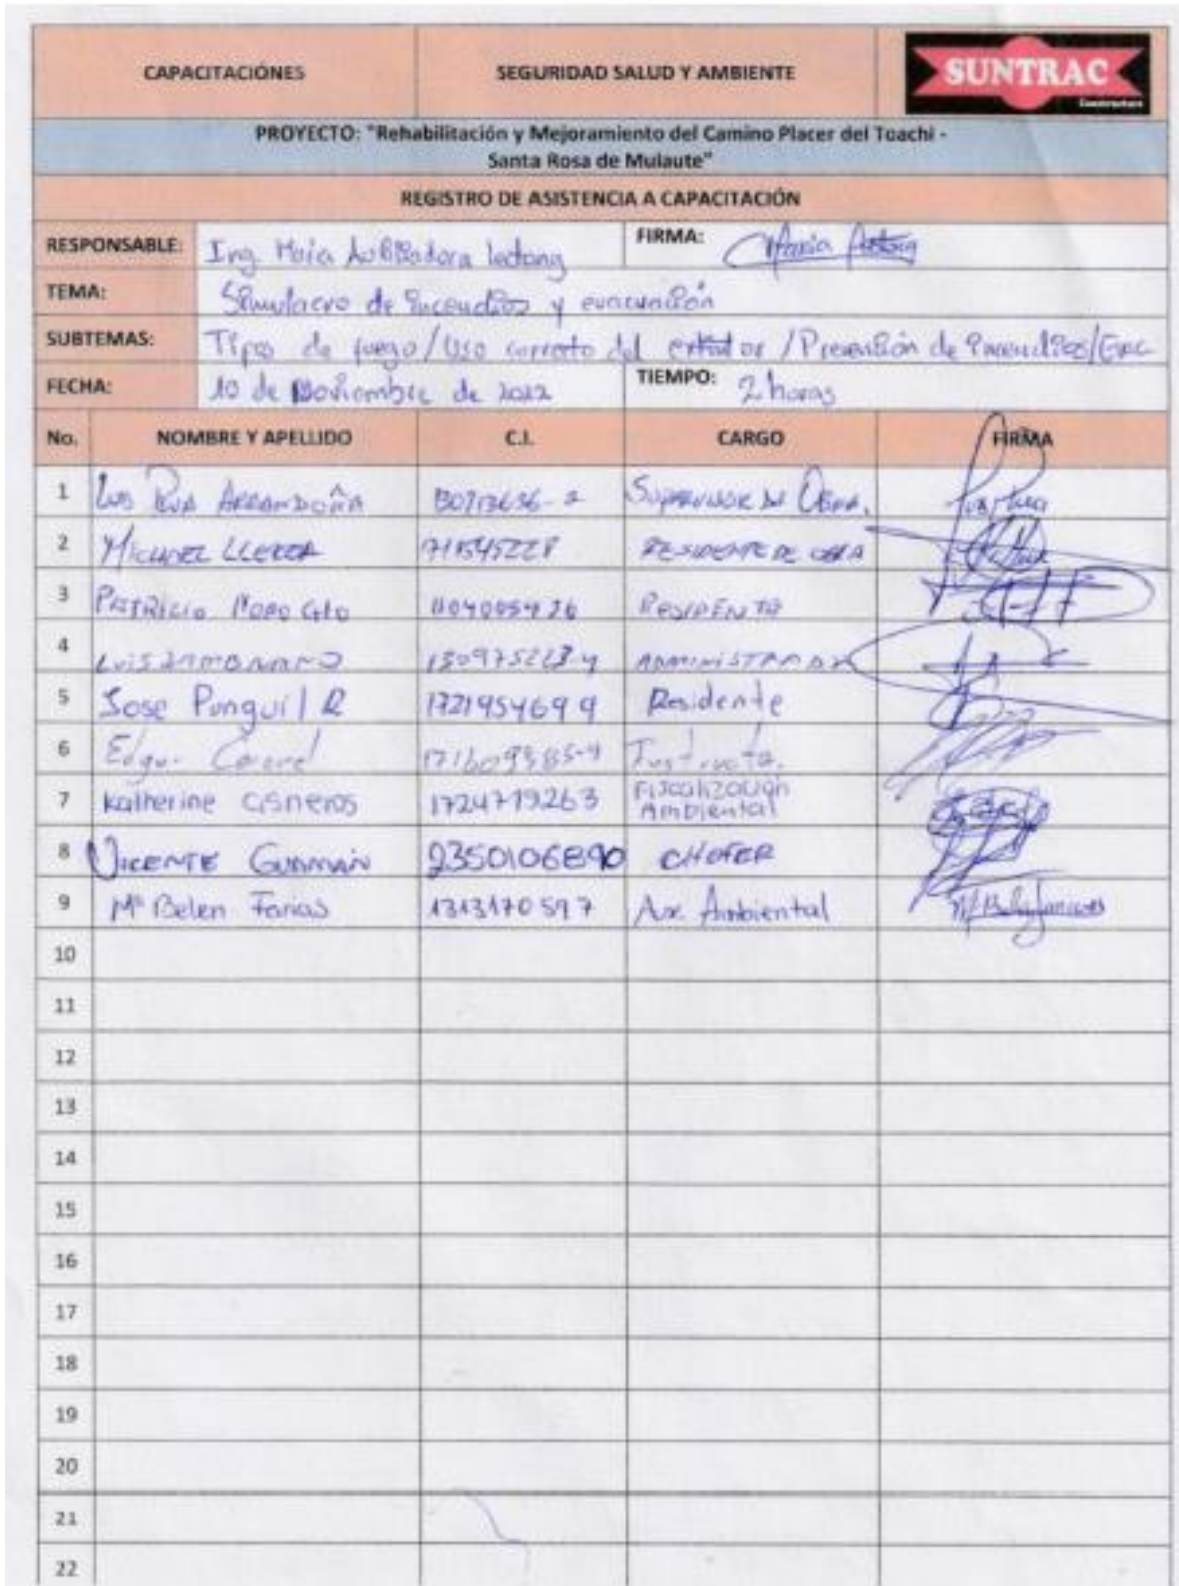 CAPACITACIÓNES SEGURIDAD SALUD Y AMBIENTE SUNTRAC
Constructora
PROYECTO: "Rehabilitación y Mejoramiento del Camino Placer del Toachi -
Santa Rosa de Mulaute"
REGISTRO DE ASISTENCIA A CAPACITACIÓN
RESPONSABLE: Ing. FIRMA: Maria
TEMA: Simulacro de incendios y evacuación
SUBTEMAS: Tipos de fuego/Uso correcto del /Prevención de incendios/Evac
FECHA: 10 de Noviembre de 2022 TIEMPO: 2 horas
No. NOMBRE Y APELLIDO C.I. CARGO FIRMA
1 Luis SUPERVISOR DE OBRA.
2 MICHAEL LLERENA RESIDENTE DE OBRA
3 PATRICIO RESIDENTE
4 LUIS ZAMBRANO ADMINISTRADOR
5 Jose Punguil R 1721954699 Residente
6
7 Katherine Cisneros 1724719263 Fiscalización
Ambiental
8 VICENTE GUAMAN 2350106890 CHOFER
9 Mª Belen Farias 1313170597 Aux. Ambiental
10
11
12
13
14
15
16
17
18
19
20
21
22